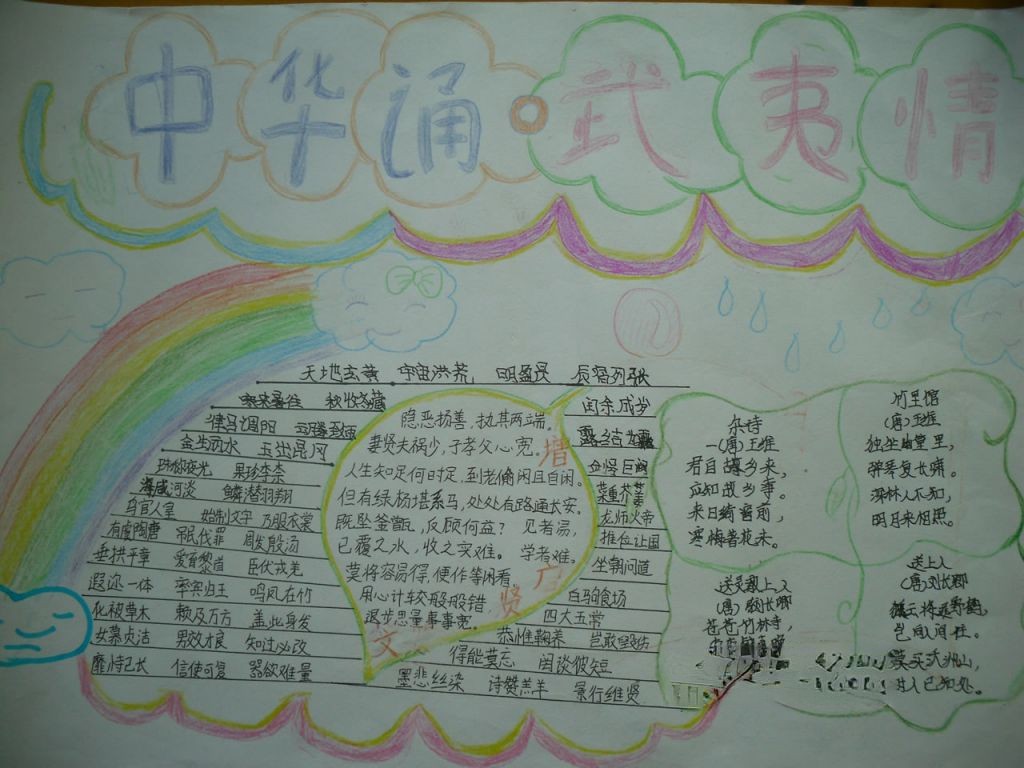 中华诵·武夷情
天地玄黄 宇宙洪荒 日月盈昃 辰宿列张
寒来暑往 秋收冬藏
闰余成岁
律吕调阳 云腾致雨
露结为霜
金生丽水 玉出昆冈
剑号巨阙
珠称夜光 果珍李柰
菜重芥姜
海咸河淡 鳞潜羽翔
龙师火帝
鸟官人皇 始制文字 乃服衣裳
推位让国
有虞陶唐 吊民伐罪 周发殷汤
坐朝问道
垂拱平章 爱育黎首 臣伏戎羌
遐迩一体 率宾归王 鸣凤在竹
白驹食场
化被草木 赖及万方 盖此身发
四大五常
女慕贞洁 男效才良 知过必改
恭惟鞠养 岂敢毁伤
得能莫忘 罔谈彼短
靡恃己长 信使可复 器欲难量
墨悲丝染 诗赞羔羊 景行维贤
增广贤文
隐恶扬善，执其两端。
妻贤夫祸少，子孝父心宽。
人生知足何时足，到老偷闲且自闲。
但有绿杨堪系马，处处有路通长安。
既坠釜甑，反顾何益？ 见者易，
已覆之水，收之实难。 学者难。
莫将容易得，便作等闲看。
用心计较般般错，
退步思量事事宽。
杂诗
(唐)王维
君自故乡来，
应知故乡事。
来日绮窗前，
寒梅著花未。
竹里馆
(唐)王维
独坐幽篁里，
弹琴复长啸。
深林人不知，
明月来相照。
送灵澈上人
(唐)刘长卿
苍苍竹林寺，
送上人
(唐)刘长卿
孤云将野鹤，
岂向人间住。
莫买沃洲山，
时人已知处。